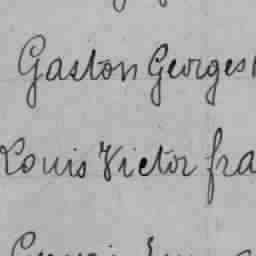 Gaston Georges
Louis Victor fra